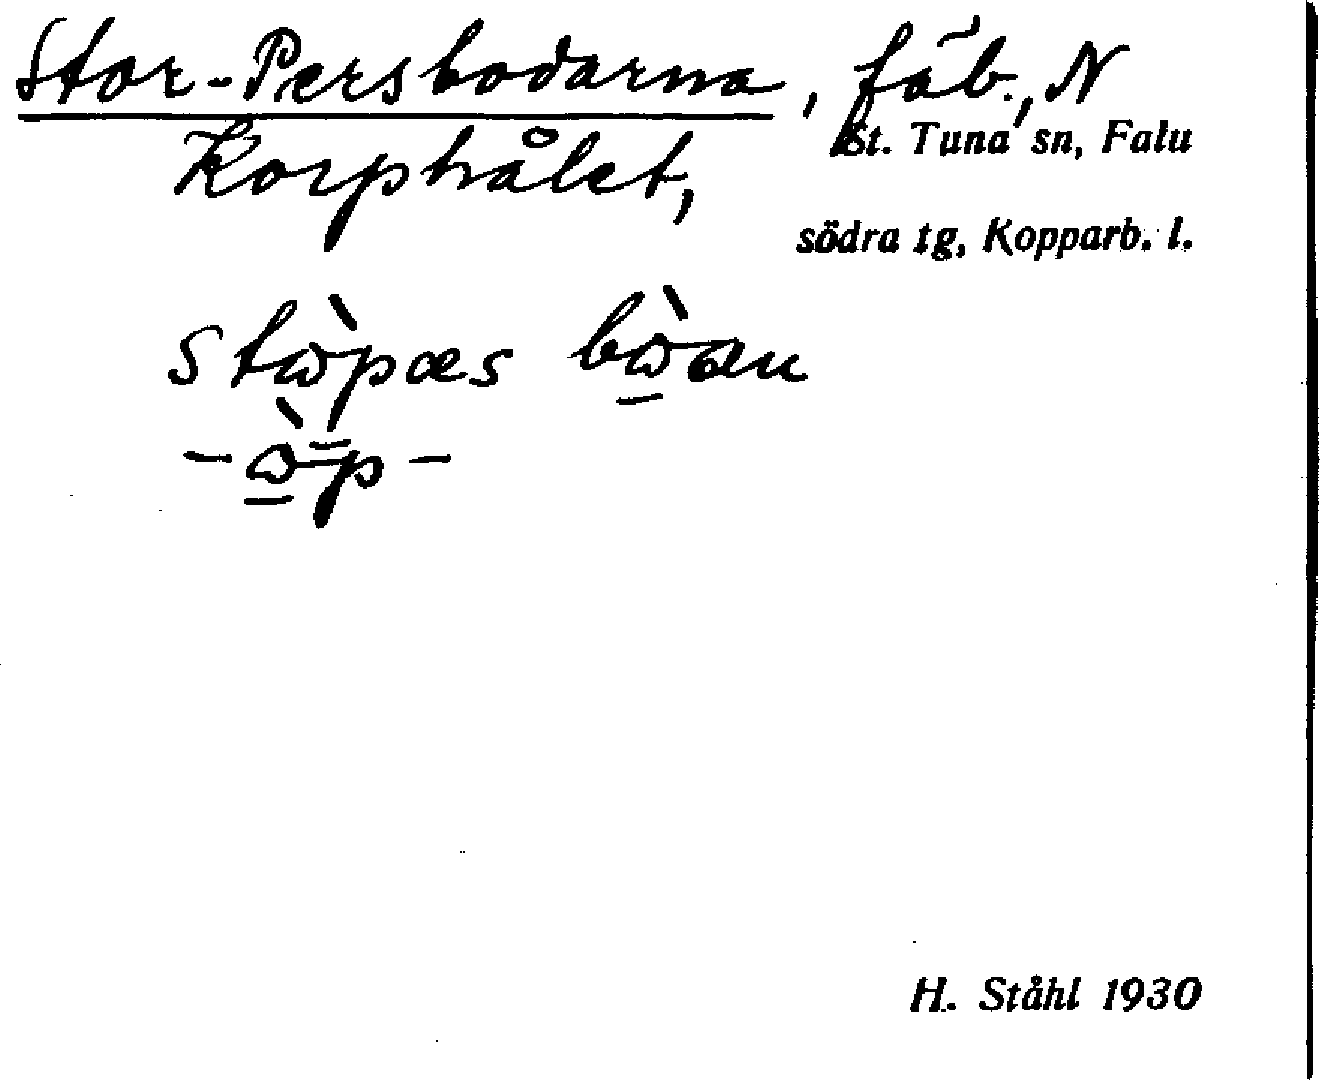 Stor-Persbodarna, fäb., N
St. Tuna sn, Falu
Korphålet,
södra tg, Kopparb. l.
H. Ståhl 1930